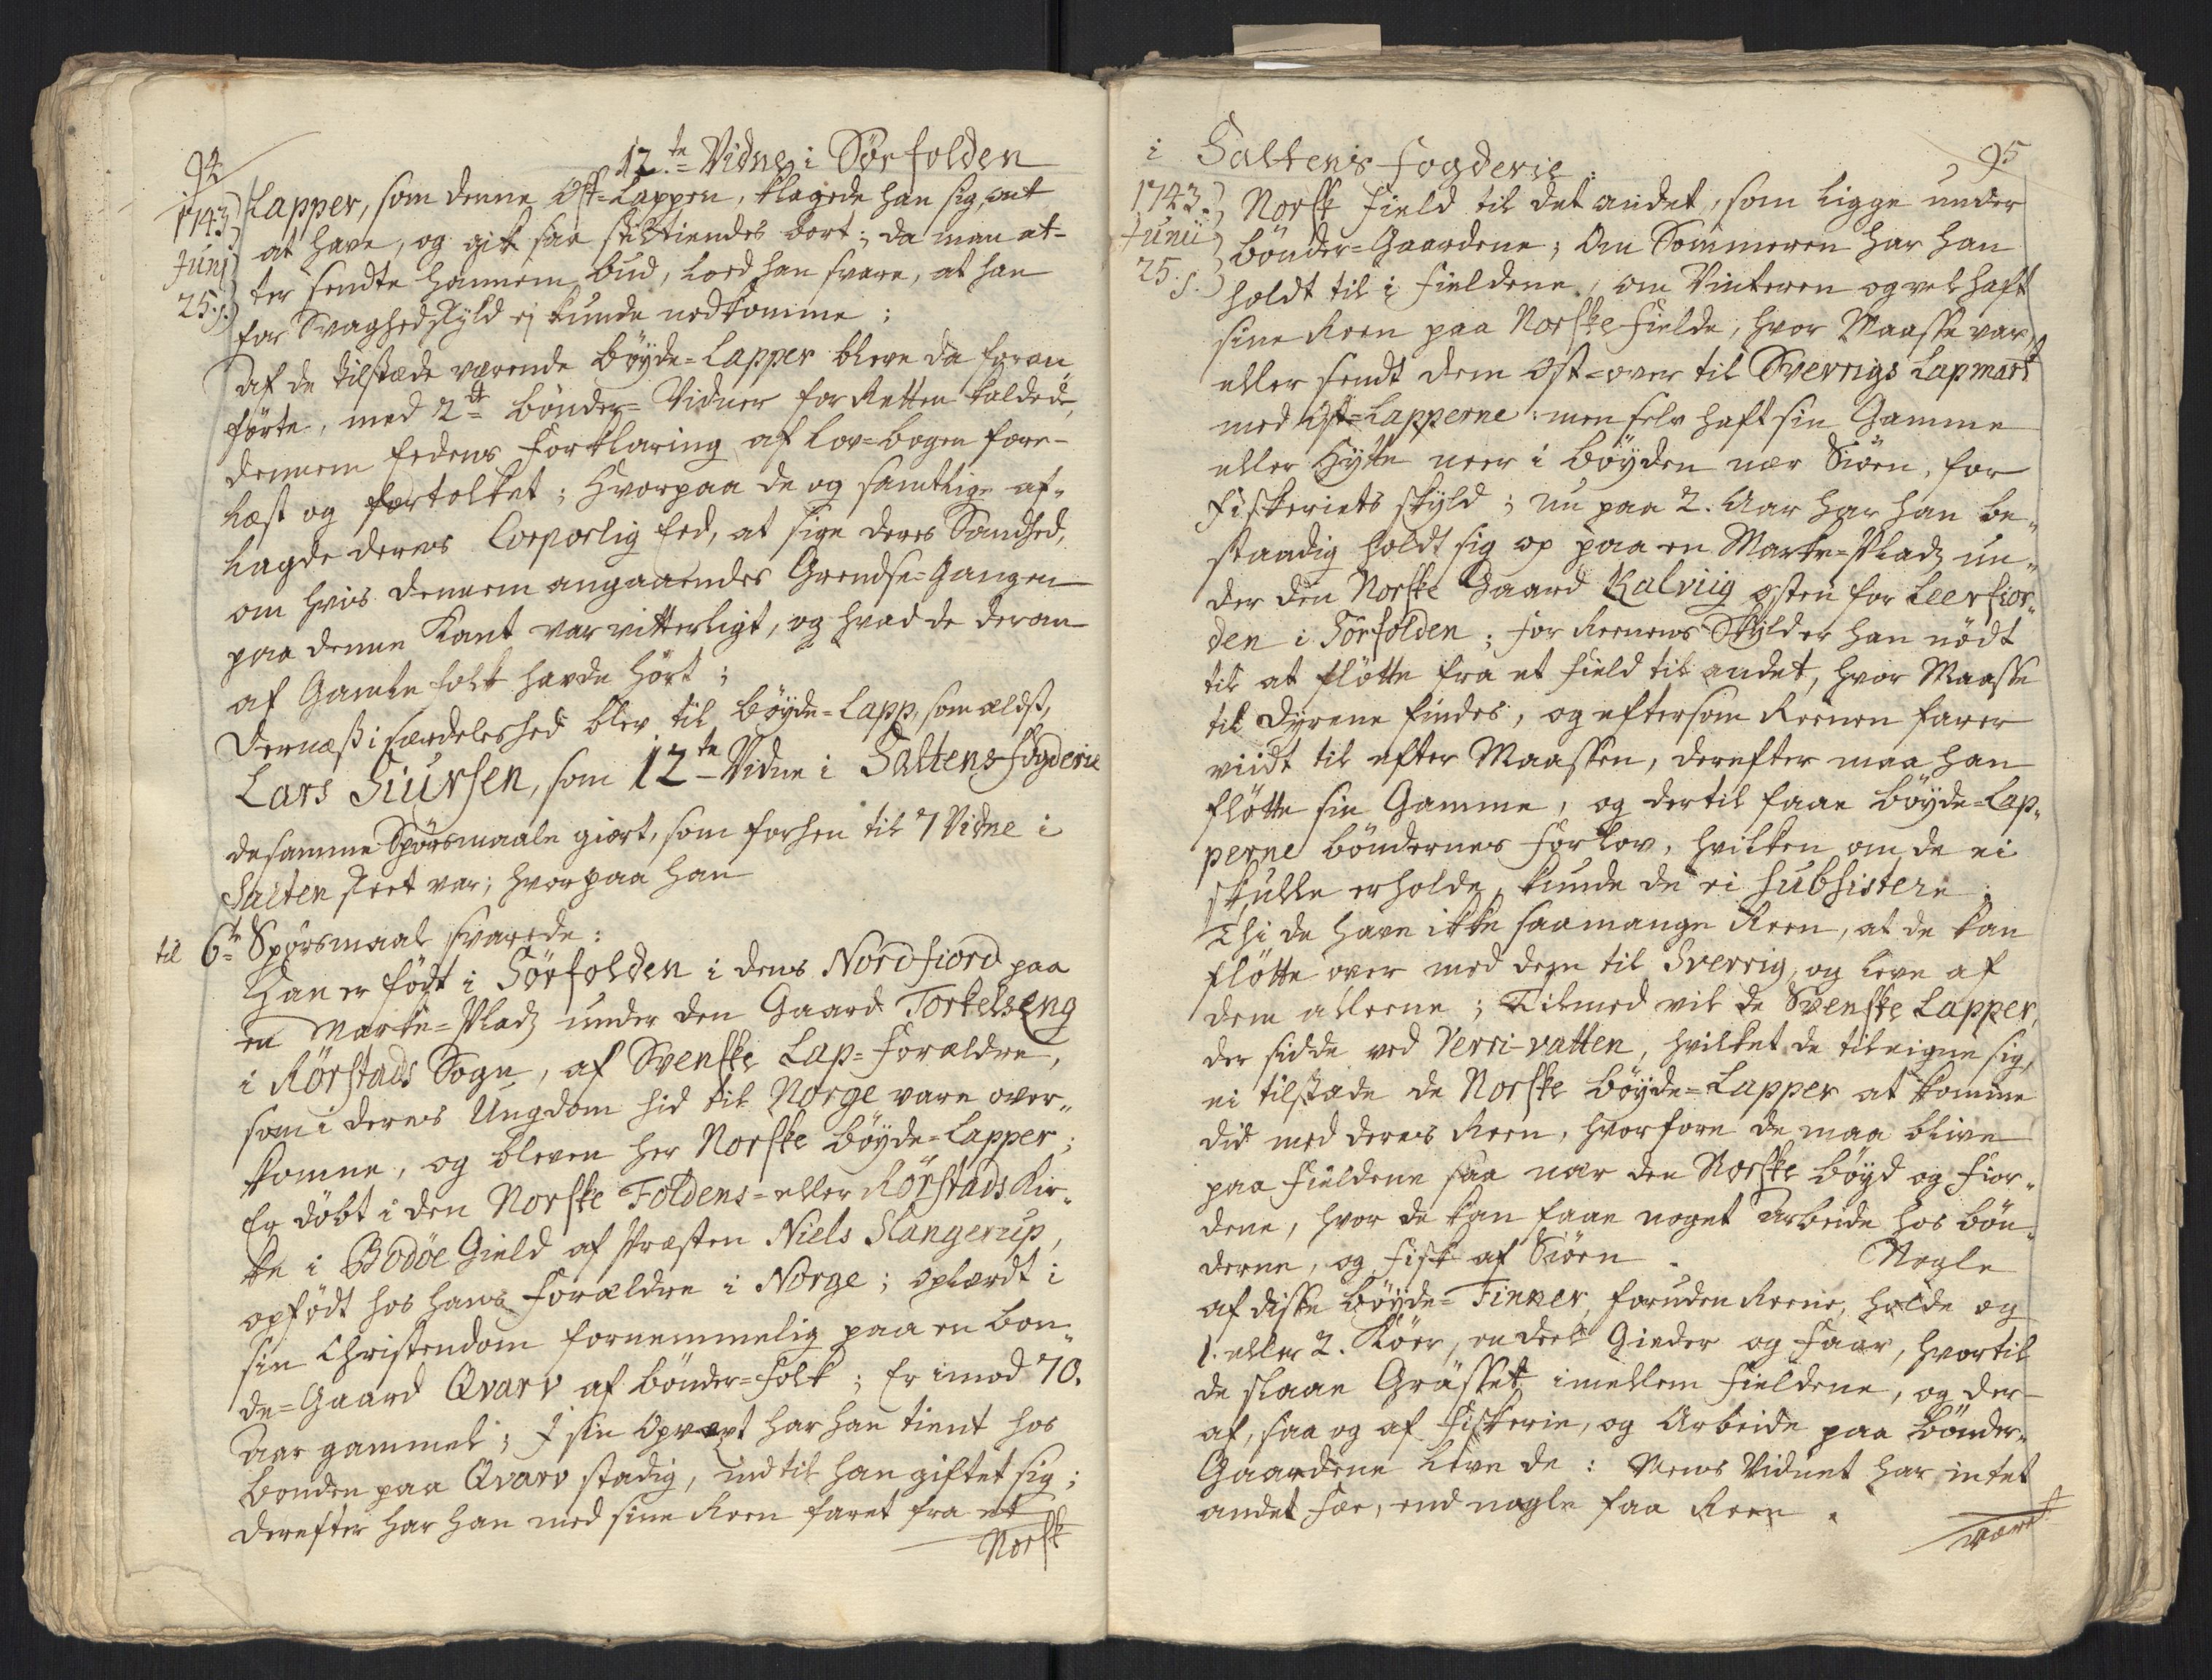 94
12.te Vidne i Sörfolden
1743
Junj
25.s.
Lapper, som denne Öst-Lappen, klagede han sig, ont
at have, og gik saa stiltiendes bort; da man at-
ter sendte hannem bud, lod han svare, at han
for Svagheds skyld ej kunde nedkomme;
Af de tilstæde værende böyde-Lapper bleve da foran
förte, med 2de bönder-Vidner for Retten kaldede,
dennem Eedens Forklaring af Lov-bogen fore-
læst og fortolket; hvorpaa de og samtlige af-
lagde deres Corporlig Eed, at sige deres Sandhed,
om hvis dennem angaaendes Grendse-Gangen
paa denne Kant var vitterligt, og hvad de derom
af Gamle folk havde hört;
Dernæst i særdeleshed blev til böyde-Lapp, som ældst,
Lars Siursen, som 12te Vidne i Saltens fogderie
de samme Spörsmaale giort, som forhen til 7 Vidne i
Salten skeet var; hvorpaa han
til 6te Spörsmaal svarede:
Han er födt i Sörfolden i dens Nordfiord paa
en Marke-Pladz under den Gaard Torkelseng
i Rörstads Sogn, af Svenske Lap-Forældre,
som i deres Ungdom hid til Norge vare over-
komne, og bleven her Norske böyde-Lapper;
Er döbt i den Norske Foldens- eller Rörstads Kir-
ke i Bodöe Gield af Præsten Niels Slangerup,
opfödt hos hans Forældre i Norge; oplærdt i
sin Christendom fornemmelig paa en bon-
de-Gaard Qvarv af bönder-Folk; Er imod 70.
aar gammel; I sin Opvæxt har han tient hos
bonden paa Qvarv stadig, indtil han giftet sig;
Derefter har han med sine Reen faret fra et
Norsk
95
i Saltens fogderie.
1743.
Junii
25.s.
Norsk Field til det andet, som ligge under
bönder-Gaardene; Om Sommeren har han
holdt til i Fieldene, om Vinteren og vel haft
sine Reen paa Norske Fielde, hvor Maasse var,
eller sendt dem öst-over til Sverrigs Lapmark
med Öst-Lapperne: men selv haft sin Gamme
eller Hytte neer i böyden nær Siöen, for
Fiskeriets skyld; nu paa 2. Aar har han be-
staadig holdt sig op paa en Marke-Pladz un-
der den Norske Gaard Kalviig östen for Leerfior-
den i Sörfolden; for Reenens Skyld er han nödt
til at flötte fra et Field til andet, hvor Maasse
til Dyrene findes, og eftersom Reenen farer
viidt til efter Maassen, derefter maa han
flötte sin Gamme, og dertil faae böyde-Lap-
perne böndernes Forlov, hvilken om de ei
skulle erholde, kunde de ei subsistere;
Thi de have ikke saa mange Reen, at de kan
flötte over med dem til Sverrig, og leve af
dem alleene; Tilmed vil de Svenske Lapper,
der sidde ved Verri-vatten, hvilket de tileigne sig,
ei tilstæde de Norske böyde-Lapper at komme
did med deres Reen, hvorfore de maa blive
paa Fieldene saa nær den Norske böyd og Fior-
dene, hvor de kan faae noget Arbeide hos bön-
derne, og Fisk af Siöen. Nogle
af disse böyde-Finner, foruden Reene, holde og
1. eller 2. Köer, en deel Gieder og Faar, hvortil
de slaae Grässet imellem Fieldene, og der-
af, saa og af Fiskerie, og Arbeide paa Bönder-
Gaardene leve de: Mens Vidnet har intet
andet Fæe, end nogle faa Reen.